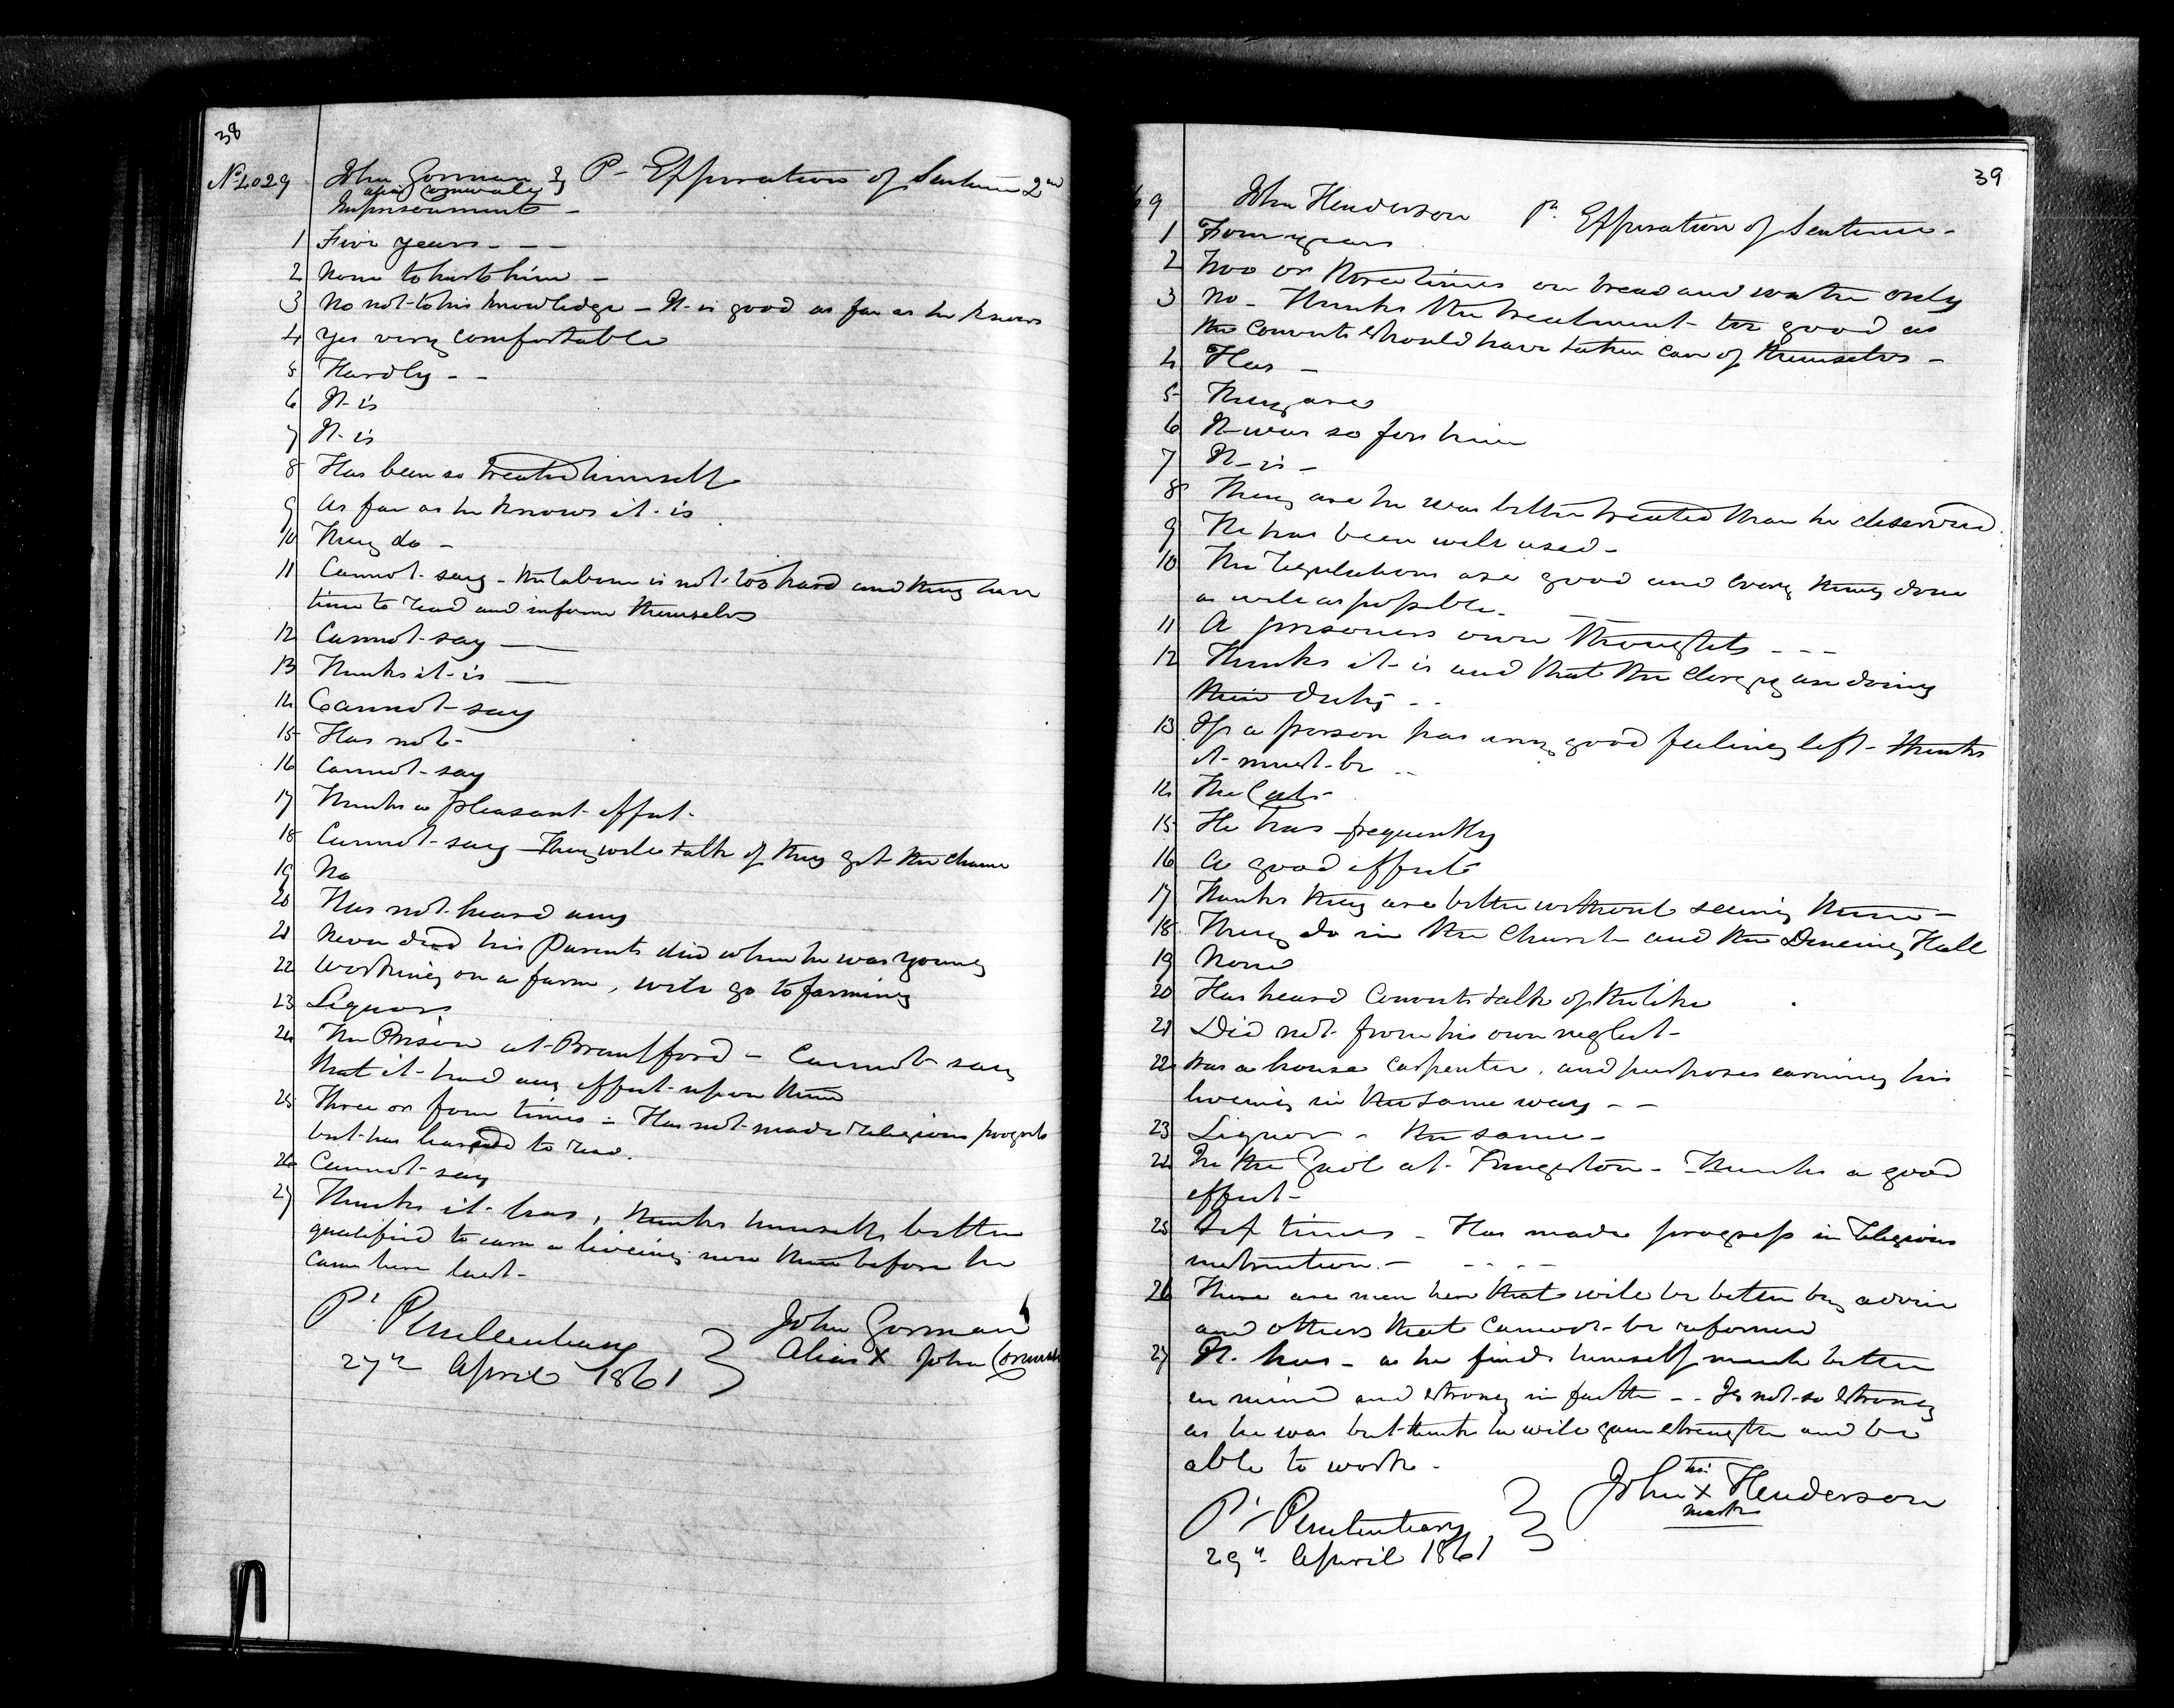 38
No 4029 John Gorman } P- Expiration of Sentence 2nd
alias
Imprisonment -
1 Five years - - -
2 None to hurt him -
3 No not to his knowledge - It is good as far as he knows
4 Yes very comfortable
5 Hardly - -
6 It is
7 It is
8 Has been so treated himself
9 As far as he knows it is
10 They do -
11 Cannot say - the labour is not too hard and they have
time to read and inform themselves
12 Cannot say
13 Thinks it is
14 Cannot say
15 Has not -
16 Cannot say
17 Thinks a pleasant effect -
18 Cannot say - They will talk if they get the chance
19 No
20 Has not heard any
21 Never did his Parents died when he was young
22 Working on a farm, will go to farming
23 Liquors
24 The Prison at Brantford - Cannot say
that it had any effect upon him
25 Three or four times - Has not made religious progress
but has learned to read.
26 Cannot say
27 Thinks it has, thinks himself better
qualified to earn a liveing now than before he
came here last -
Pl. Penitentiary
27th April 1861 }
John Gorman
Alias X John
39
9 John Henderson Pn. Expiration of Sentence -
1 Four years
2 Two or three times on bread and water only
3 No - Thinks the treatment too good as
the Convicts should have taken care of themselves -
4 Has -
5 They are
6 It was so for him
7 It is -
8 They are he was better treated than he deserved
9 He has been well used -
10 The regulations are good and every thing done
as well as possible -
11 A prisoners own thoughts - - -
12 Thinks it is and that the Clergy are doing
their duty - -
13 If a person has any good feeling left - thinks
it must be - -
14 The Cats -
15 He has frequently
16 A good effect
17 Thinks they are better without seeing them -
18 They do in the Church and the Dineing Hall
19 None
20 Has heard Convicts talk of the like
21 Did not from his own neglect -
22 Was a house Carpenter, and purposes earning his
liveing in the same way - -
23 Liquor - the same -
24 In the Gaol at Kingston - Thinks a good
effect -
25 Six times - Has made progress in Religious
instruction. - - - - -
26 There are men here that will be better by advice
and others that cannot be reformed
27 It has - as he finds himself much better
in mind and strong in faith - - Is not so strong
as he was but thinks he will gain strength and be
able to work -
Pl. Penitentiary
29th April 1861 }
John his X mark Henderson